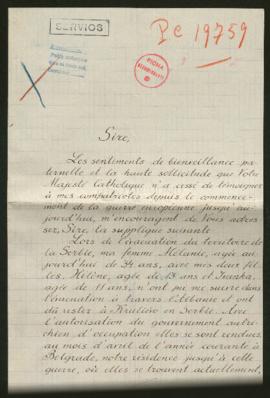 SERVIOS
Pc 19759
Sire,
Les sentiments de bienveillance pa-
ternelle et la haute sollicitude que Votre
Majesté Catholique n'a cessé de témoigner
à mes compatriotes depuis le commence-
ment de la guerre européenne jusqu'au-
jourd'hui, m'encouragent de Vous adres-
ser, Sire, la supplique suivante
Lors de l'évacuation du territoire de
la Serbie, ma femme Mélanie, agée au-
jourd'hui de 34 ans, avec mes deux fil-
les, Hélène, agée de 13 ans et
agée de 11 ans, n'ont pu me suivre dans
l'évacuation à travers l'Albanie et ont
dû rester à en Serbie. Avec
l'autorisation du gouvernement autri-
chien, d'occupation elles se sont rendues
au mois d'avril de l'année courante à
Belgrade, notre résidence jusqu'à cette
guerre, où elles se trouvent actuellement,